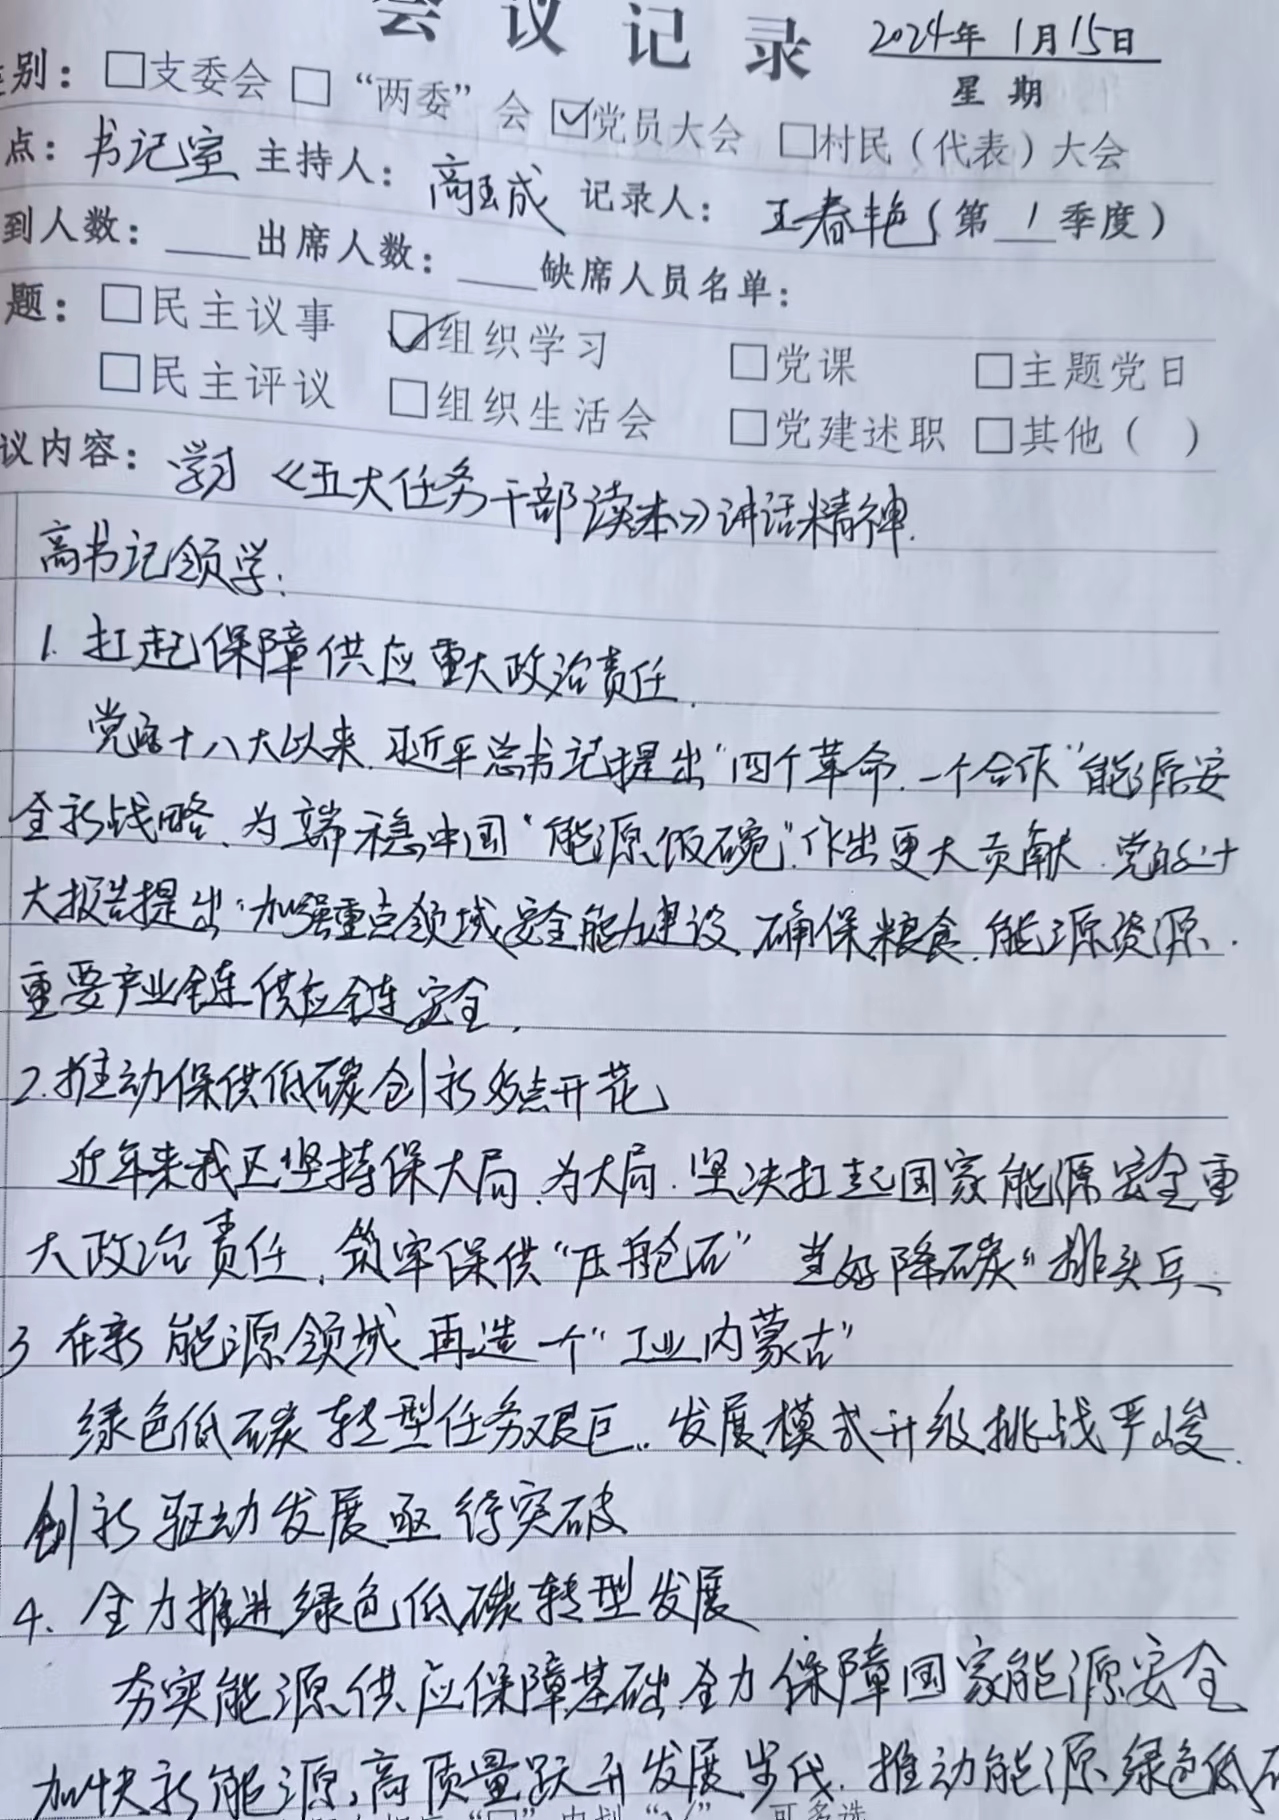 会议记录 2024年1月15日
星期
别：□支委会 □“两委”会 ☑党员大会 □村民（代表）大会
点：书记室 主持人：高玉成 记录人：王春艳（第1季度）
到人数：____出席人数：____缺席人员名单：
题：□民主议事 ☑组织学习 □党课 □主题党日
□民主评议 □组织生活会 □党建述职 □其他（ ）
议内容：学习《五大任务干部读本》讲话精神.
高书记领学：
1. 扛起保障供应重大政治责任.
党的十八大以来.习近平总书记提出“四个革命.一个合作”能源安
全新战略、为端稳中国“能源饭碗”.作出更大贡献.党的二十
大报告提出“加强重点领域安全能力建设、确保粮食.能源资源.
重要产业链供应链安全.
2.推动保供低碳创新多点开花
近年来我区坚持保大局.为大局.坚决扛起国家能源安全重
大政治责任.筑牢保供“压舱石” 当好降碳“排头兵、
3 在新能源领域再造一个“工业内蒙古”
绿色低碳转型任务艰巨.发展模式升级挑战严峻.
创新驱动发展亟待突破
4、全力推进绿色低碳转型发展
夯实能源供应保障基础全力保障国家能源安全
加快新能源.高质量跃升发展步伐.推动能源绿色低